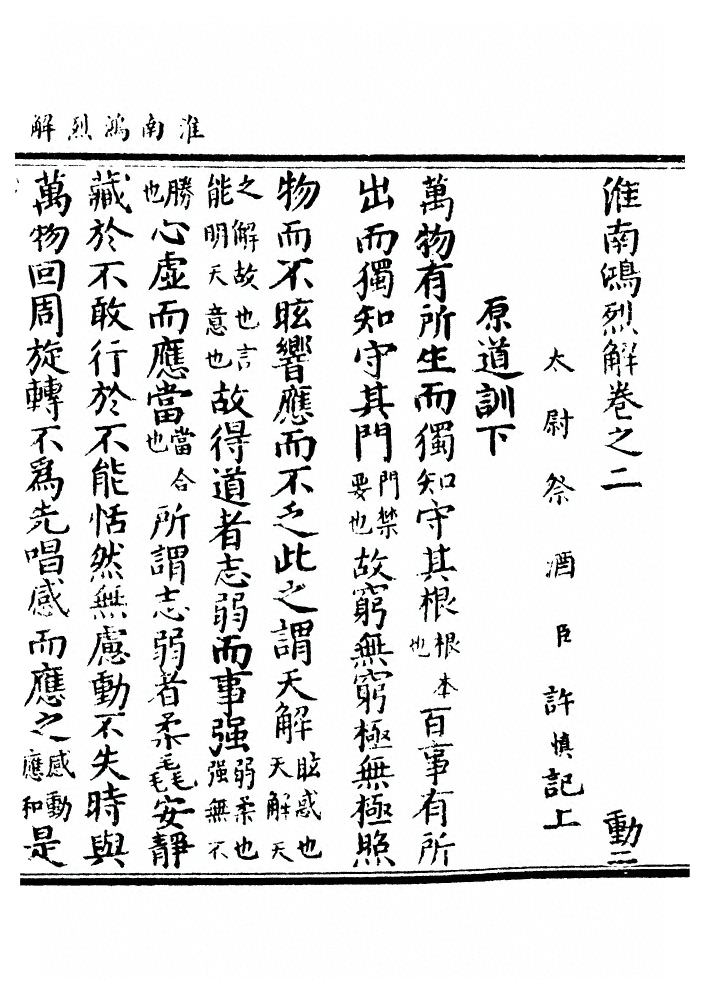 淮南鴻烈解
淮南鴻烈解卷之二 動二
太尉祭酒臣許慎記上
原道訓下
萬物有所生而獨知守其根根本也百事有所
出而獨知守其門門禁要也故窮無窮極無極照
物而不眩響應而不乏此之謂天解眩惑也天解天
之解故也言能明天意也故得道者志弱而事强弱柔也强無不
勝也心虛而應當當合也所謂志弱者柔毳安靜
藏於不敢行於不能恬然無慮動不失時與
萬物回周旋轉不爲先唱感而應之感動應和是